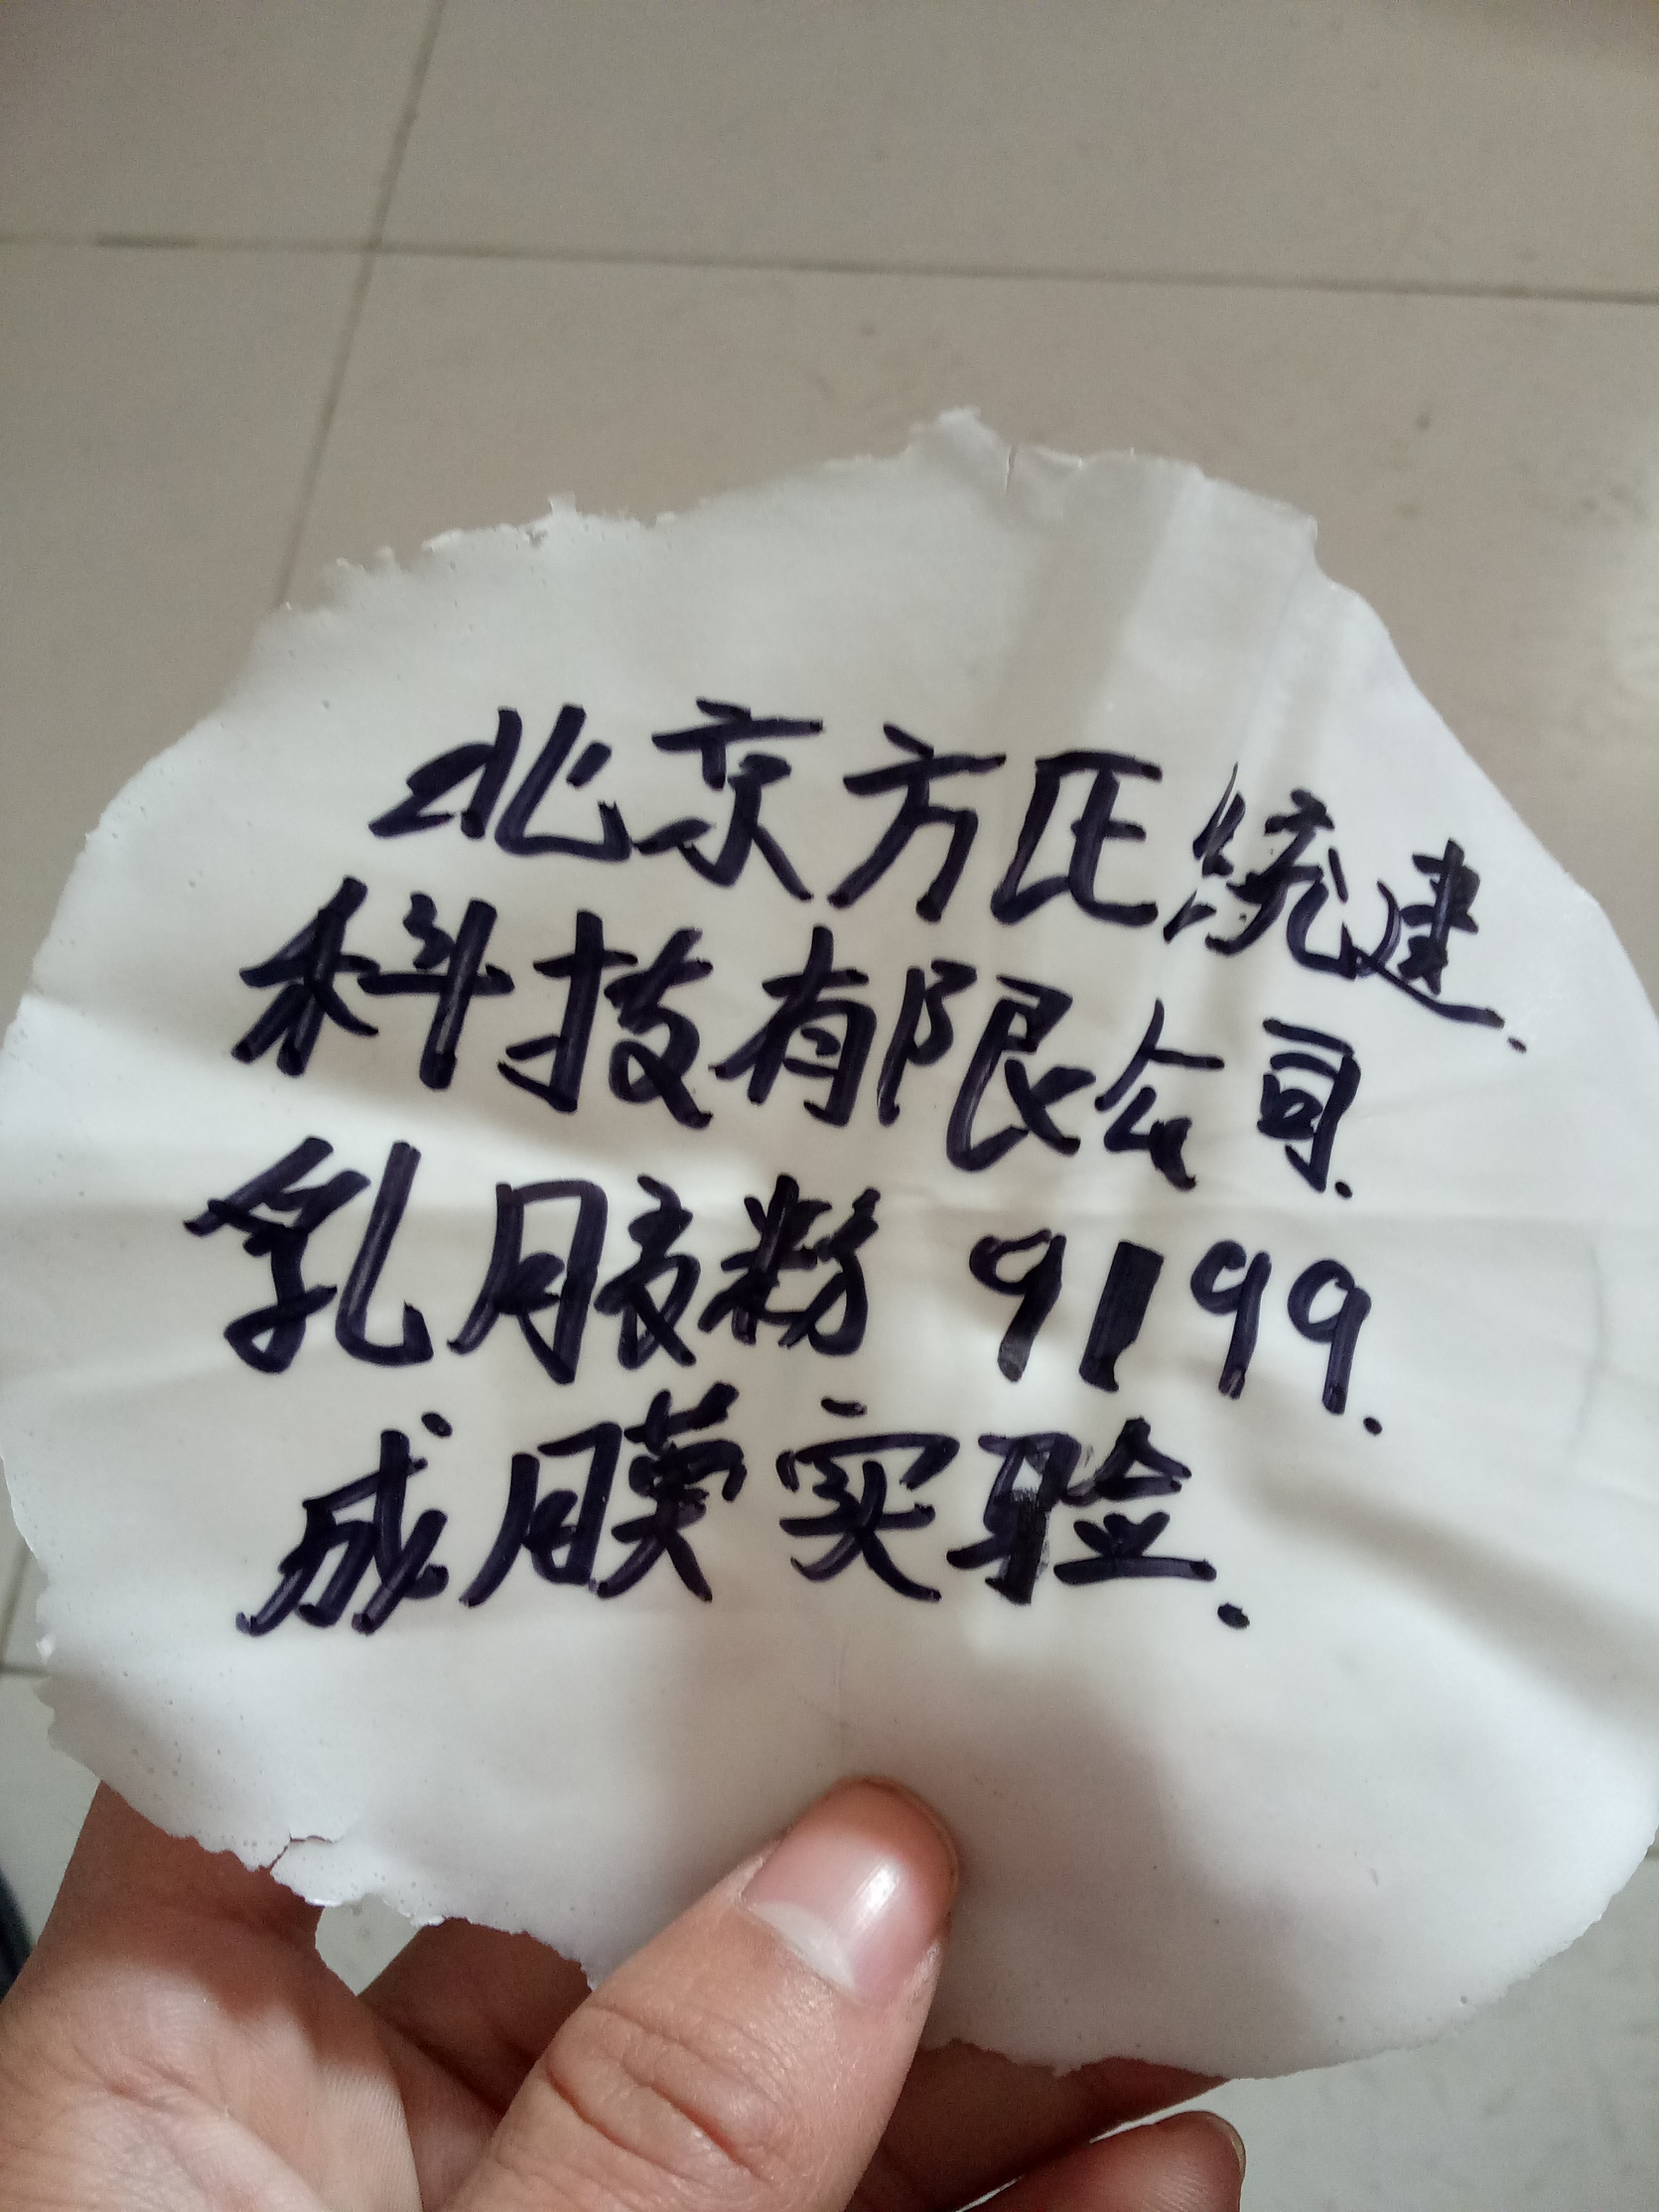 北京方正统建.
科技有限公司.
乳胶粉 9199.
成膜实验.